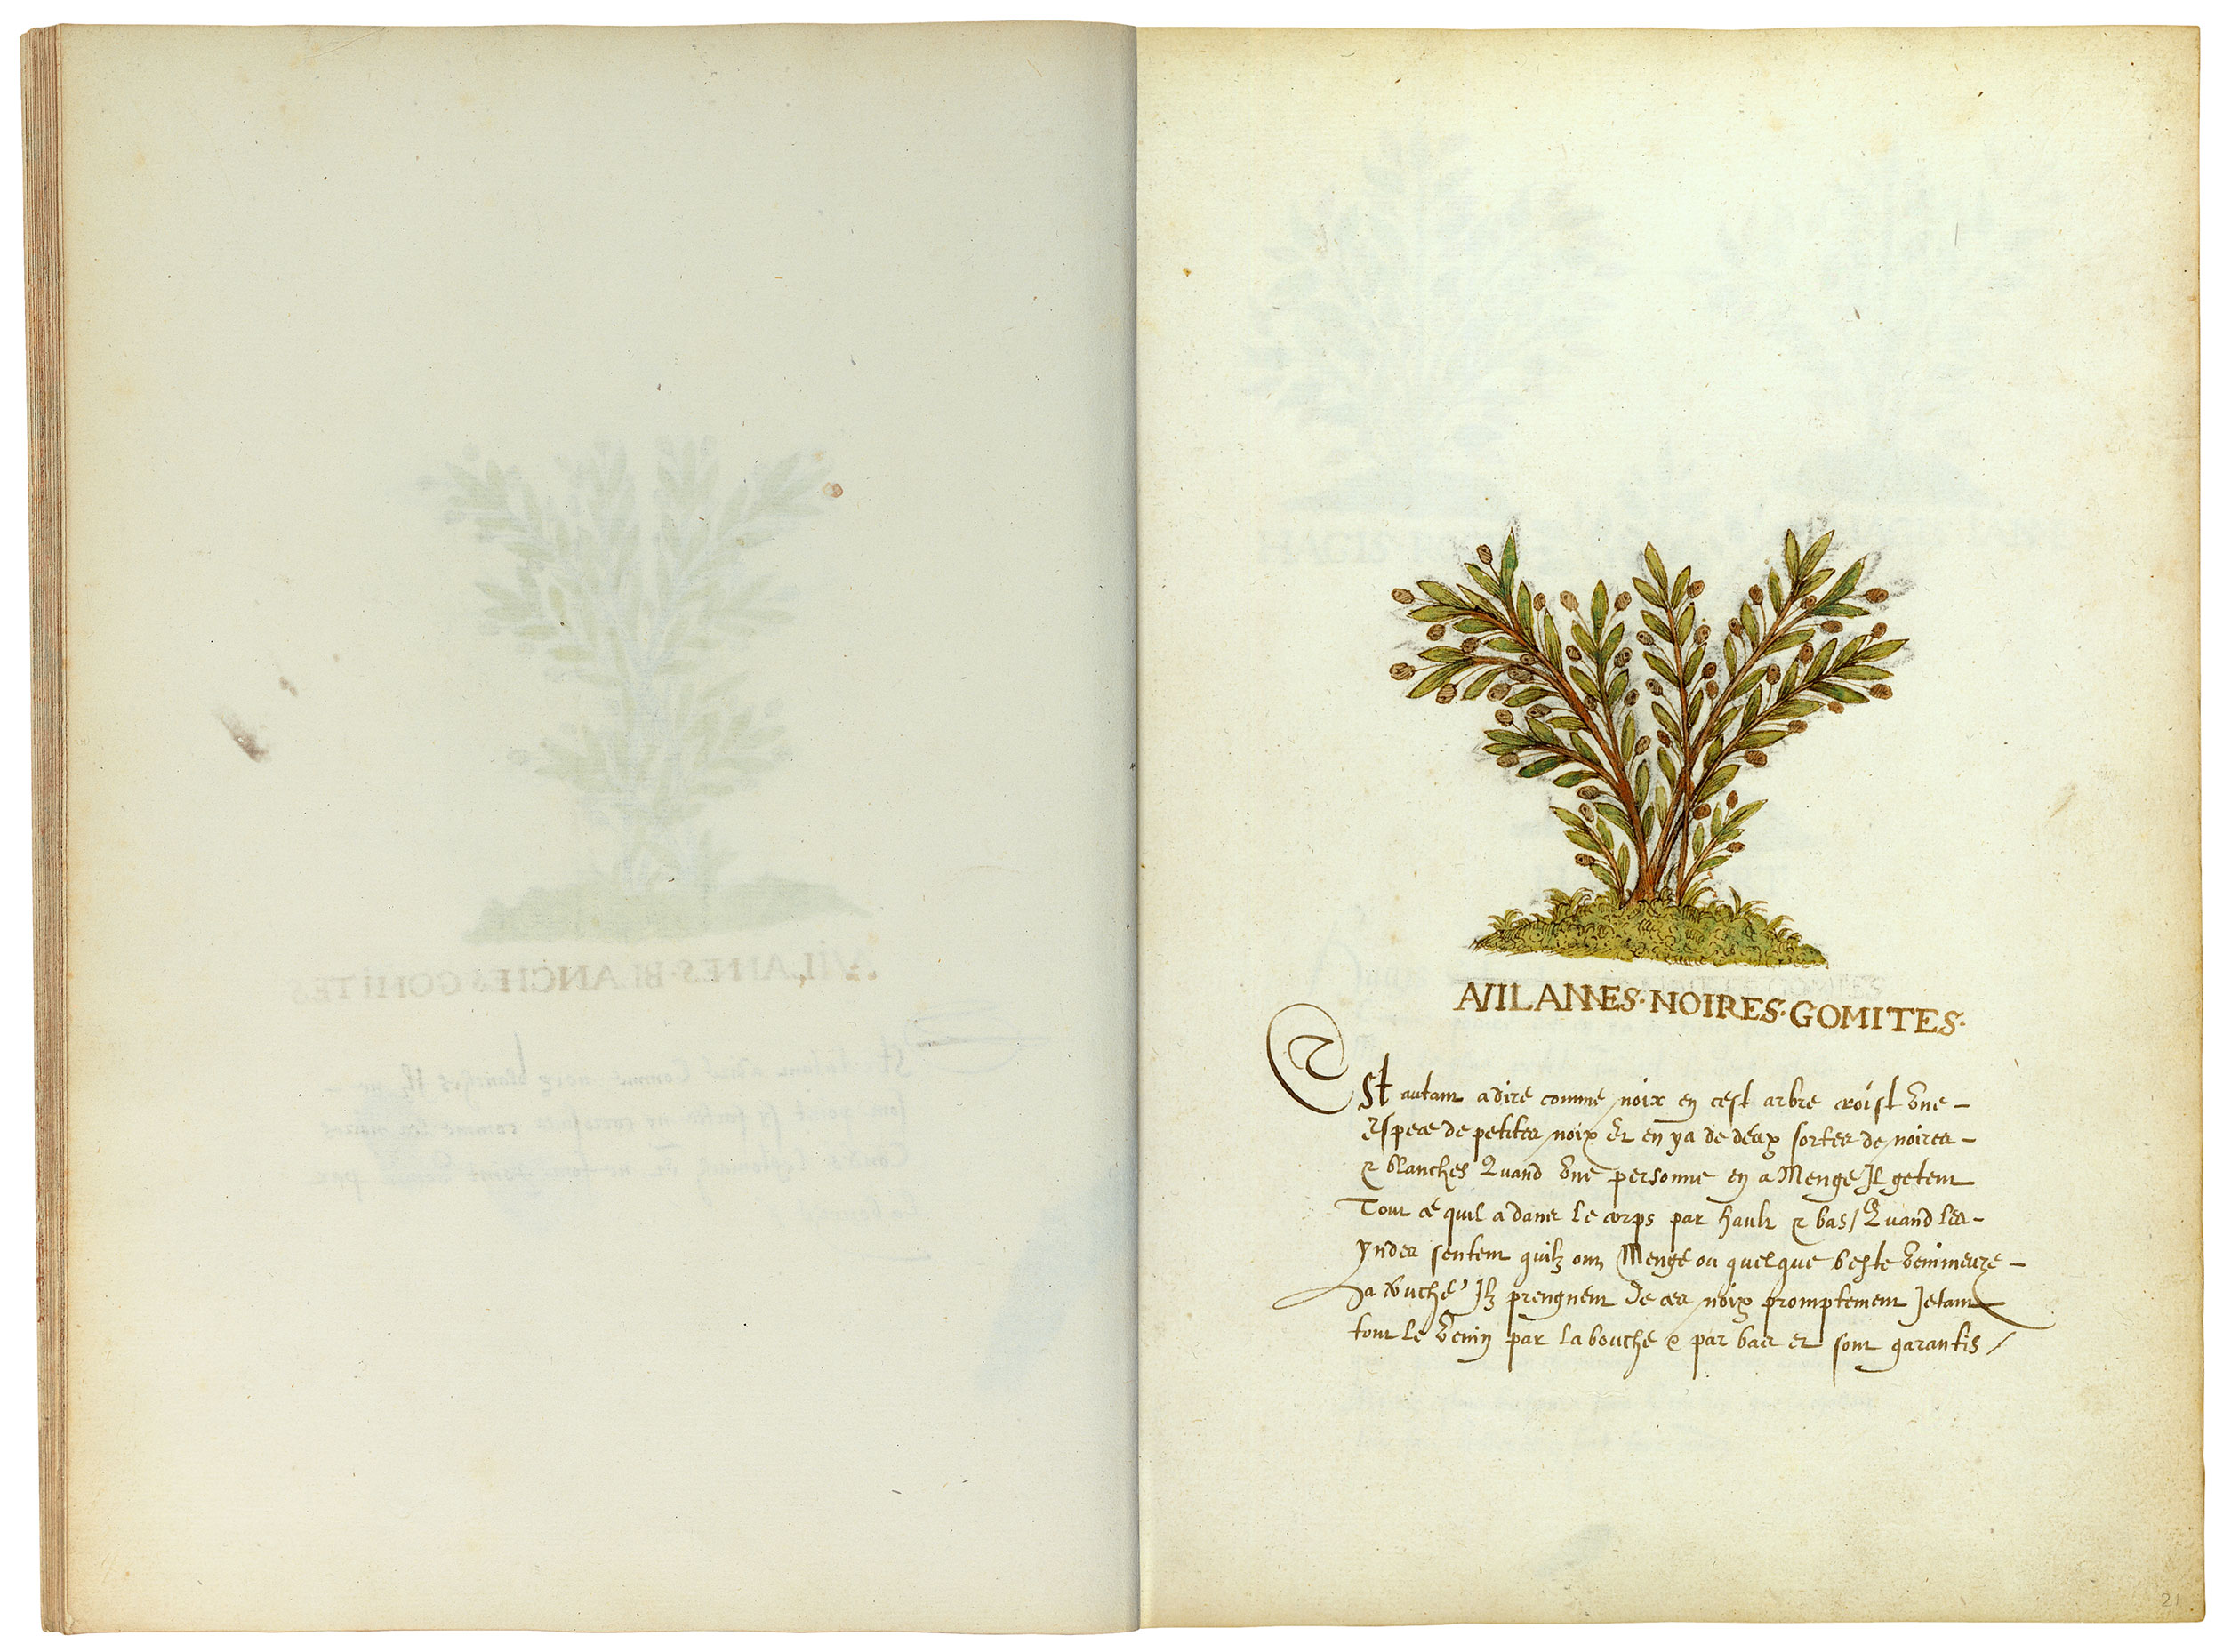 AVILANNES·NOIRES·GOMITES·
Est autant a dire comme noix en cest arbre croist une
espece de petites noix Et en ya de deux sortes de noires
& blanches Quand une personne en a Mengé Il getent
Tout ce quil a dans le corps par hault & bas / Quand les
yndes sentent quilz ont Mengé ou quelque beste venimeuze
La touché Ilz prengnent de ces noix promptement Jetant
tout le venin par la bouche & par bas et sont garantis /
21